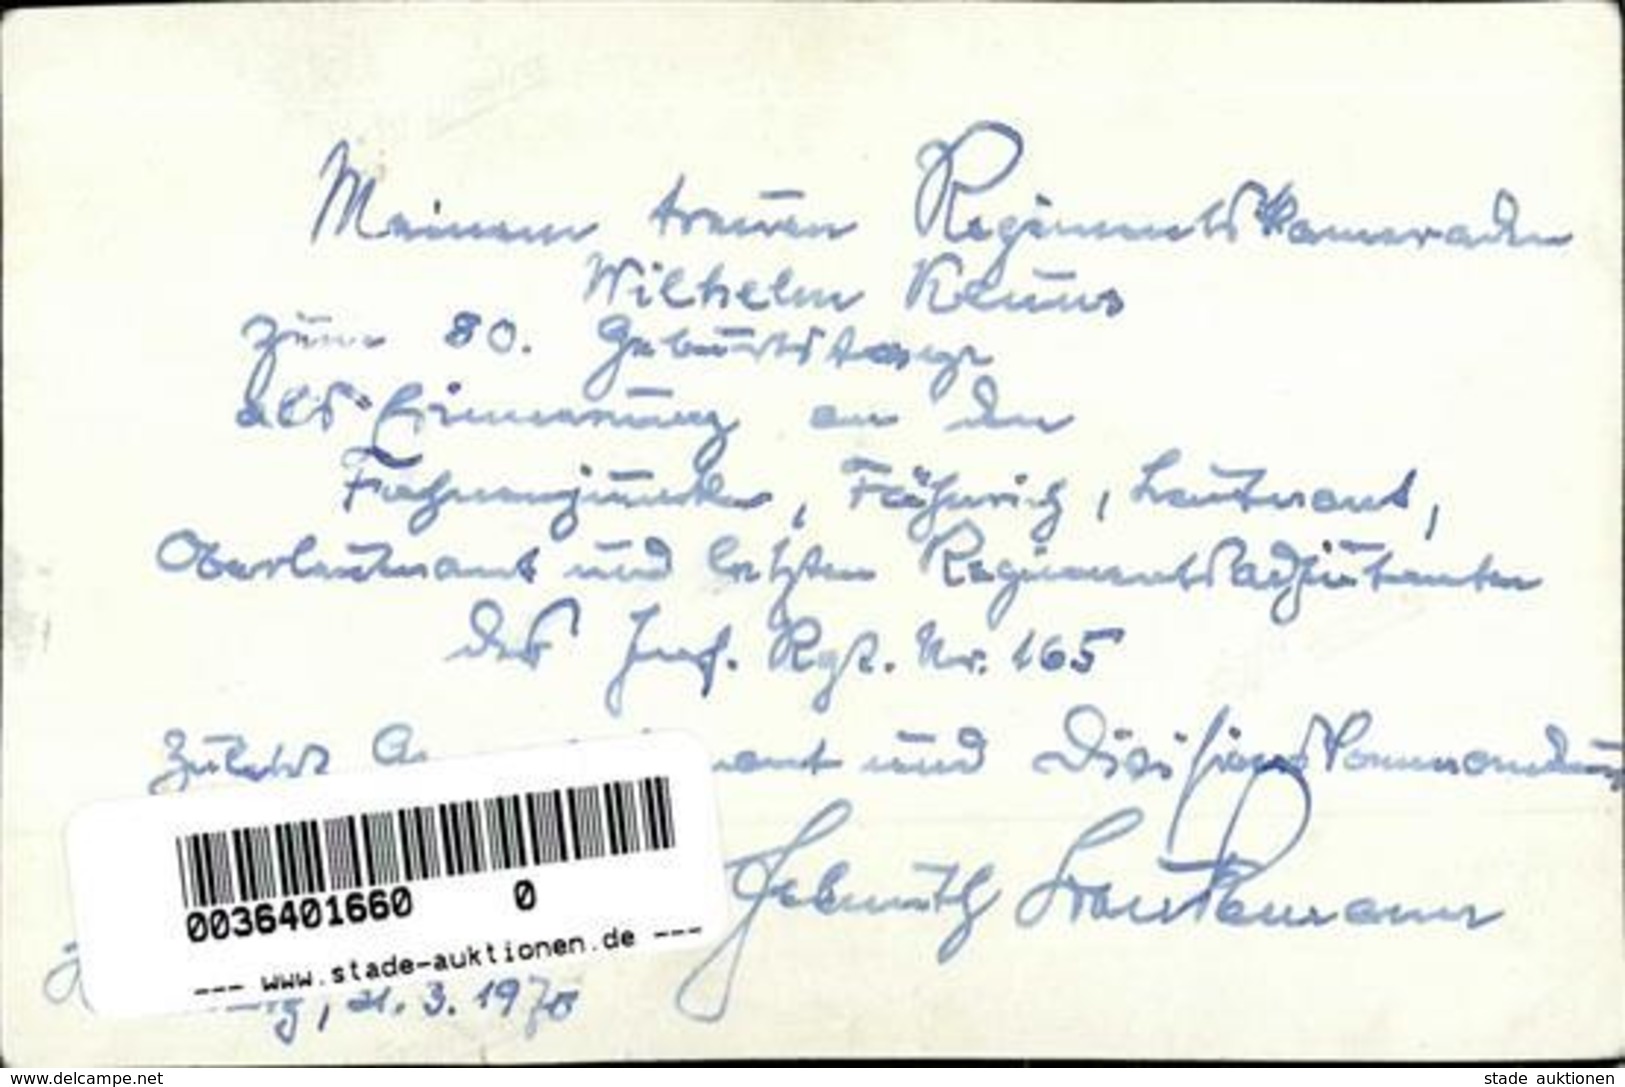 Meinem treuen Regimentskameraden
Wilhelm
zum 80. Geburtstage
als Erinnerung an den
Fahnenjunker, Fähnrich, Leutnant,
Oberleutnant und letzten Regimentsadjutanten
des Inf. Rgt. Nr. 165
zuletzt und Divisionskommandeur
Helmuth
0036401660 0
--- www.stade-auktionen.de ---
3.
www.delcampe.net
stade auktionen